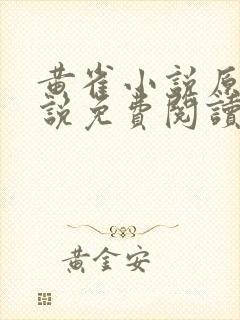 黄雀小说原
說免費閱讀
黃金安